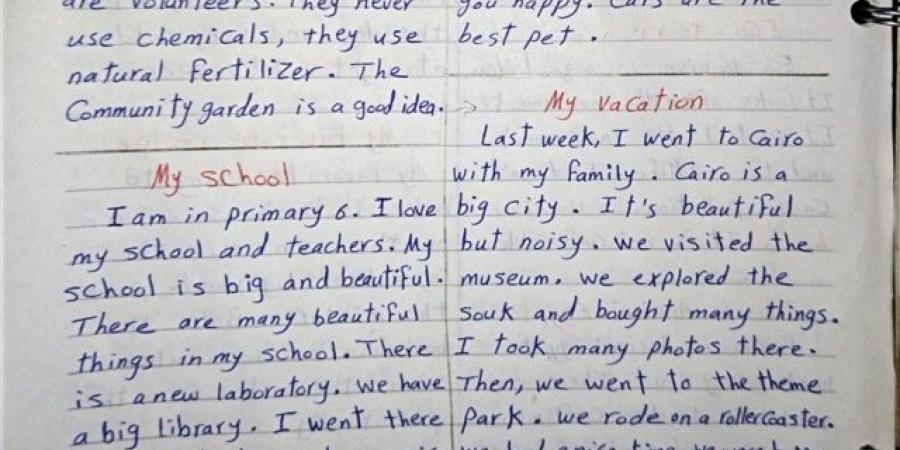 are volunteers. They never
use chemicals, they use
natural fertilizer. The
Community garden is a good idea.
My school
I am in primary 6. I love
my school and teachers. My
school is big and beautiful.
There are many beautiful
things in my school. There
is a new laboratory. we have
a big library. I went there
you happy. Cats are the
best pet.
My vacation
Last week, I went to Cairo
with my family. Cairo is a
big city. It's beautiful
but noisy. we visited the
museum. we explored the
souk and bought many things.
I took many photos there.
Then, we went to the theme
Park. we rode on a rollercoaster.